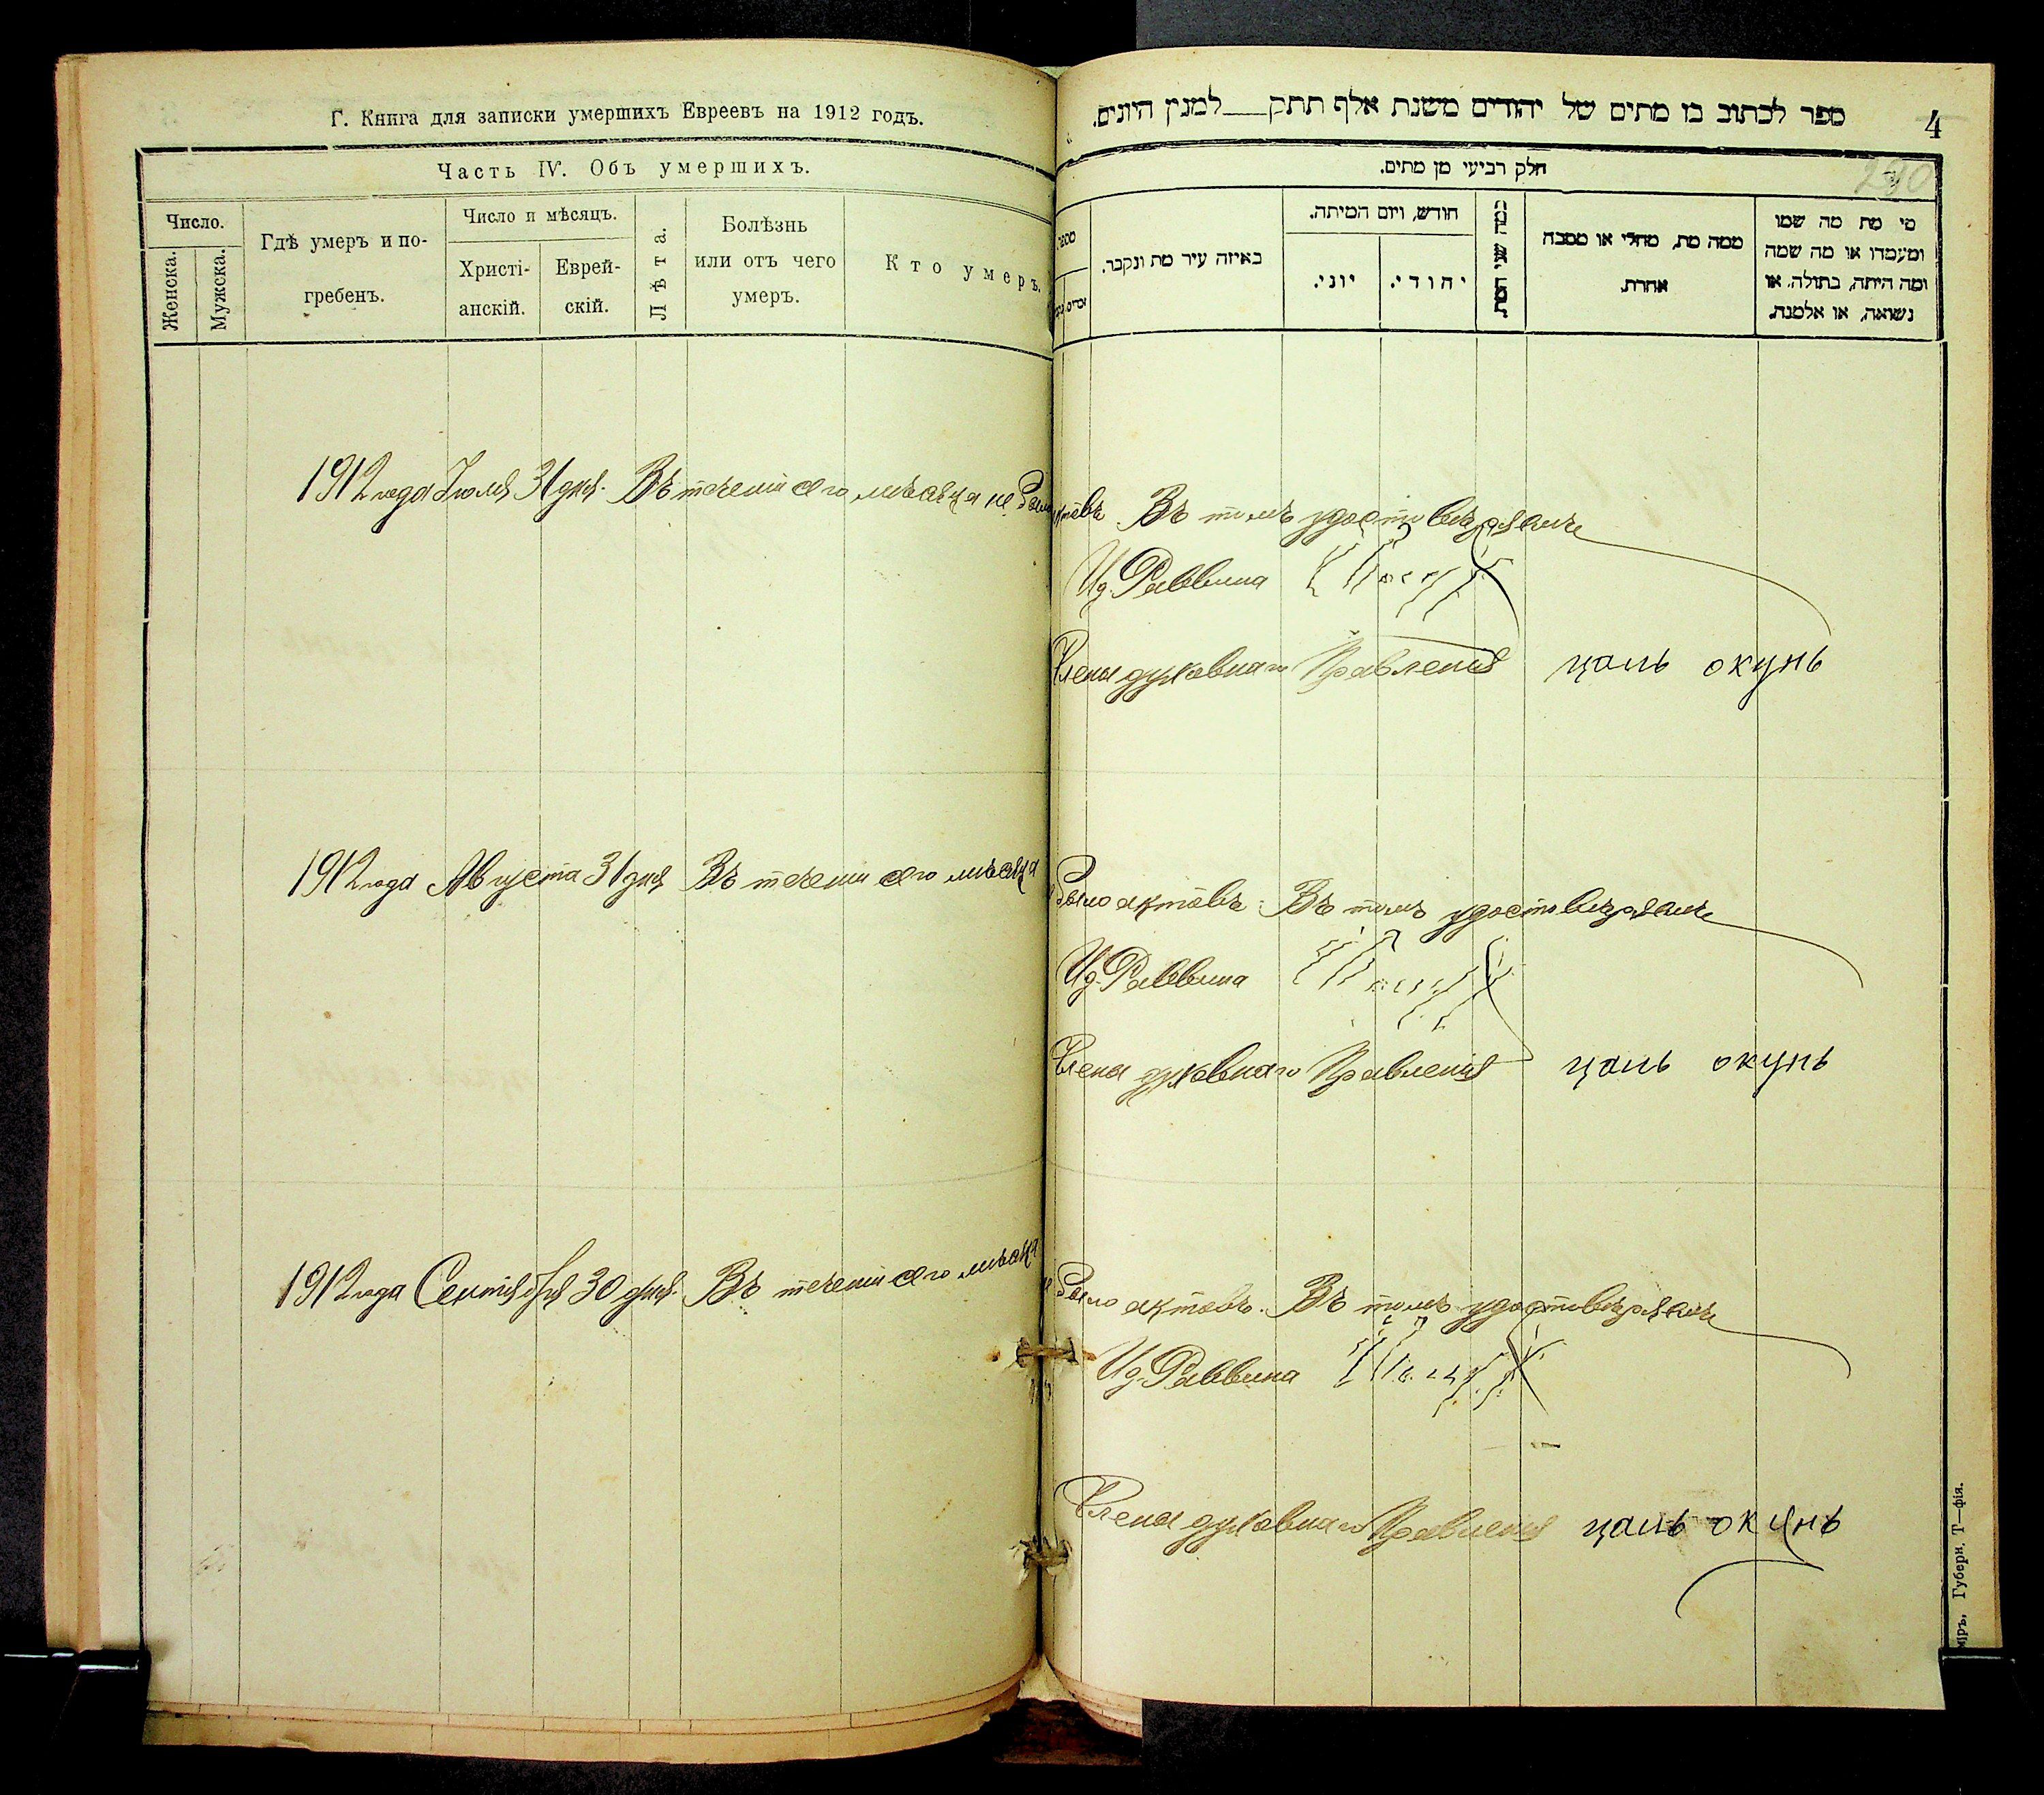 Г. Книга для записки умершихъ Евреевъ на 1912 годъ.
Часть IV. Объ умершихъ.
Число.
Женска.
Мужска.
Гдѣ умеръ и по-
гребенъ.
Число и мѣсяцъ.
Христі-
анскій.
Еврей-
скій.
Лѣта.
Болѣзнь
или отъ чего
умеръ.
Кто умеръ.
1912 года Іюля 31 дня. Въ теченіи сего мѣсяца не было
1912 года Августа 31 дня Въ теченіи сего мѣсяца
1912 года Сентября 30 дня. Въ теченіи сего мѣсяца
ספר לכתוב בו מתים של יהודים משנת אלף תתק___למנין היונים.
4
חלק רביעי מן מתים.
290
באיזה עיר מת ונקבר.
חודש, ויום המיתה.
יוני.
יהודי.
כמה שני המת.
ממה מת, מחלי או מסבה
אחרת.
מי מת מה שמו
ומעמדו או מה שמה
ומה היתה, בתולה, או
נשואה, או אלמנה.
актовъ Въ томъ удостовѣряемъ
И д. Раввина
Члена духовнаго Правленія цаль окунь
было актовъ. Въ томъ удостовѣряемъ
И д. Раввина
Члена духовнаго Правленія цаль окунь
было актовъ. Въ томъ удостовѣряемъ
И д. Раввина
Члена духовнаго Правленія цаль окунь
Губерн. Т—фія.